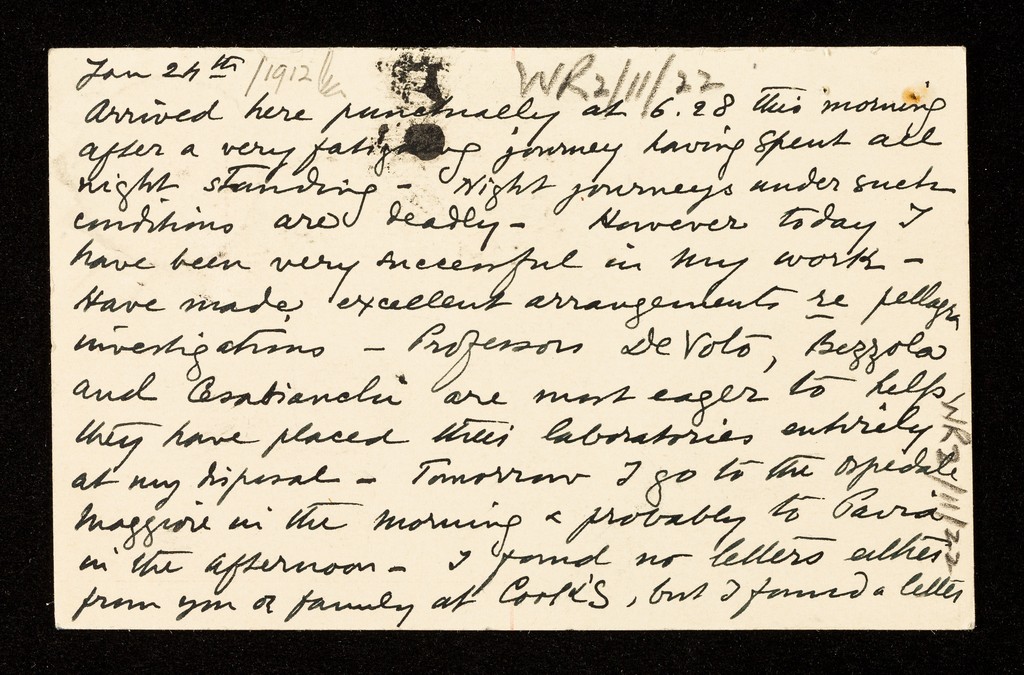 Jan 24th /1912
WR2/11/22
Arrived here punctually at 6.28 this morning
after a very fatiguing journey having spent all
night standing - Night journeys under such
conditions are deadly - However today I
have been very successful in my work -
Have made excellent arrangements re pellagra
investigations - Professors De Voto, Bezzola
and are most eager to help
they have placed their laboratories entirely
at my disposal - Tomorrow I go to the Ospedale
Maggiore in the morning & probably to Pavia
in the afternoon - I found no letters either
from you or family at Cook's, but I found a letter
WR2/11/22